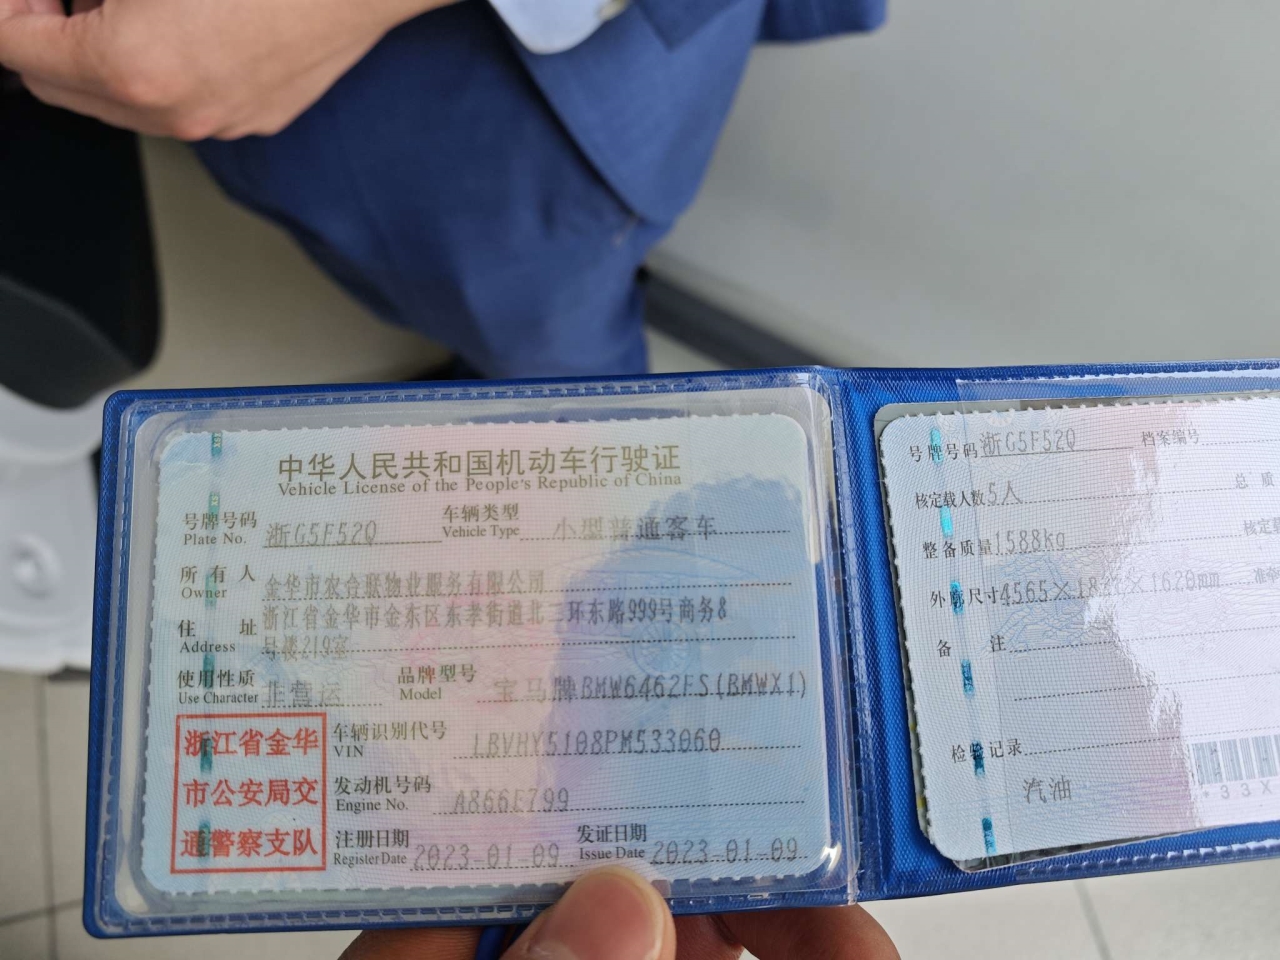 中华人民共和国机动车行驶证
Vehicle License of the People's Republic of China
号牌号码 浙G5F52Q 车辆类型 小型普通客车
Plate No. Vehicle Type
所有人 金华市农合联物业服务有限公司
Owner
住址 浙江省金华市金东区东孝街道北三环东路999号商务8
Address 号楼219室
使用性质 非营运 品牌型号 宝马牌BMW6462FS(BMWX1)
Use Character Model
浙江省金华
市公安局交
通警察支队
车辆识别代号 LBVHY5108PM533060
VIN
发动机号码 A866E799
Engine No.
注册日期 2023-01-09 发证日期 2023-01-09
Register Date Issue Date
号牌号码 浙G5F52Q 档案编号
核定载人数 5人 总质
整备质量 1588kg 核定
外廓尺寸 准牵
备注
检验记录
汽油
*33X